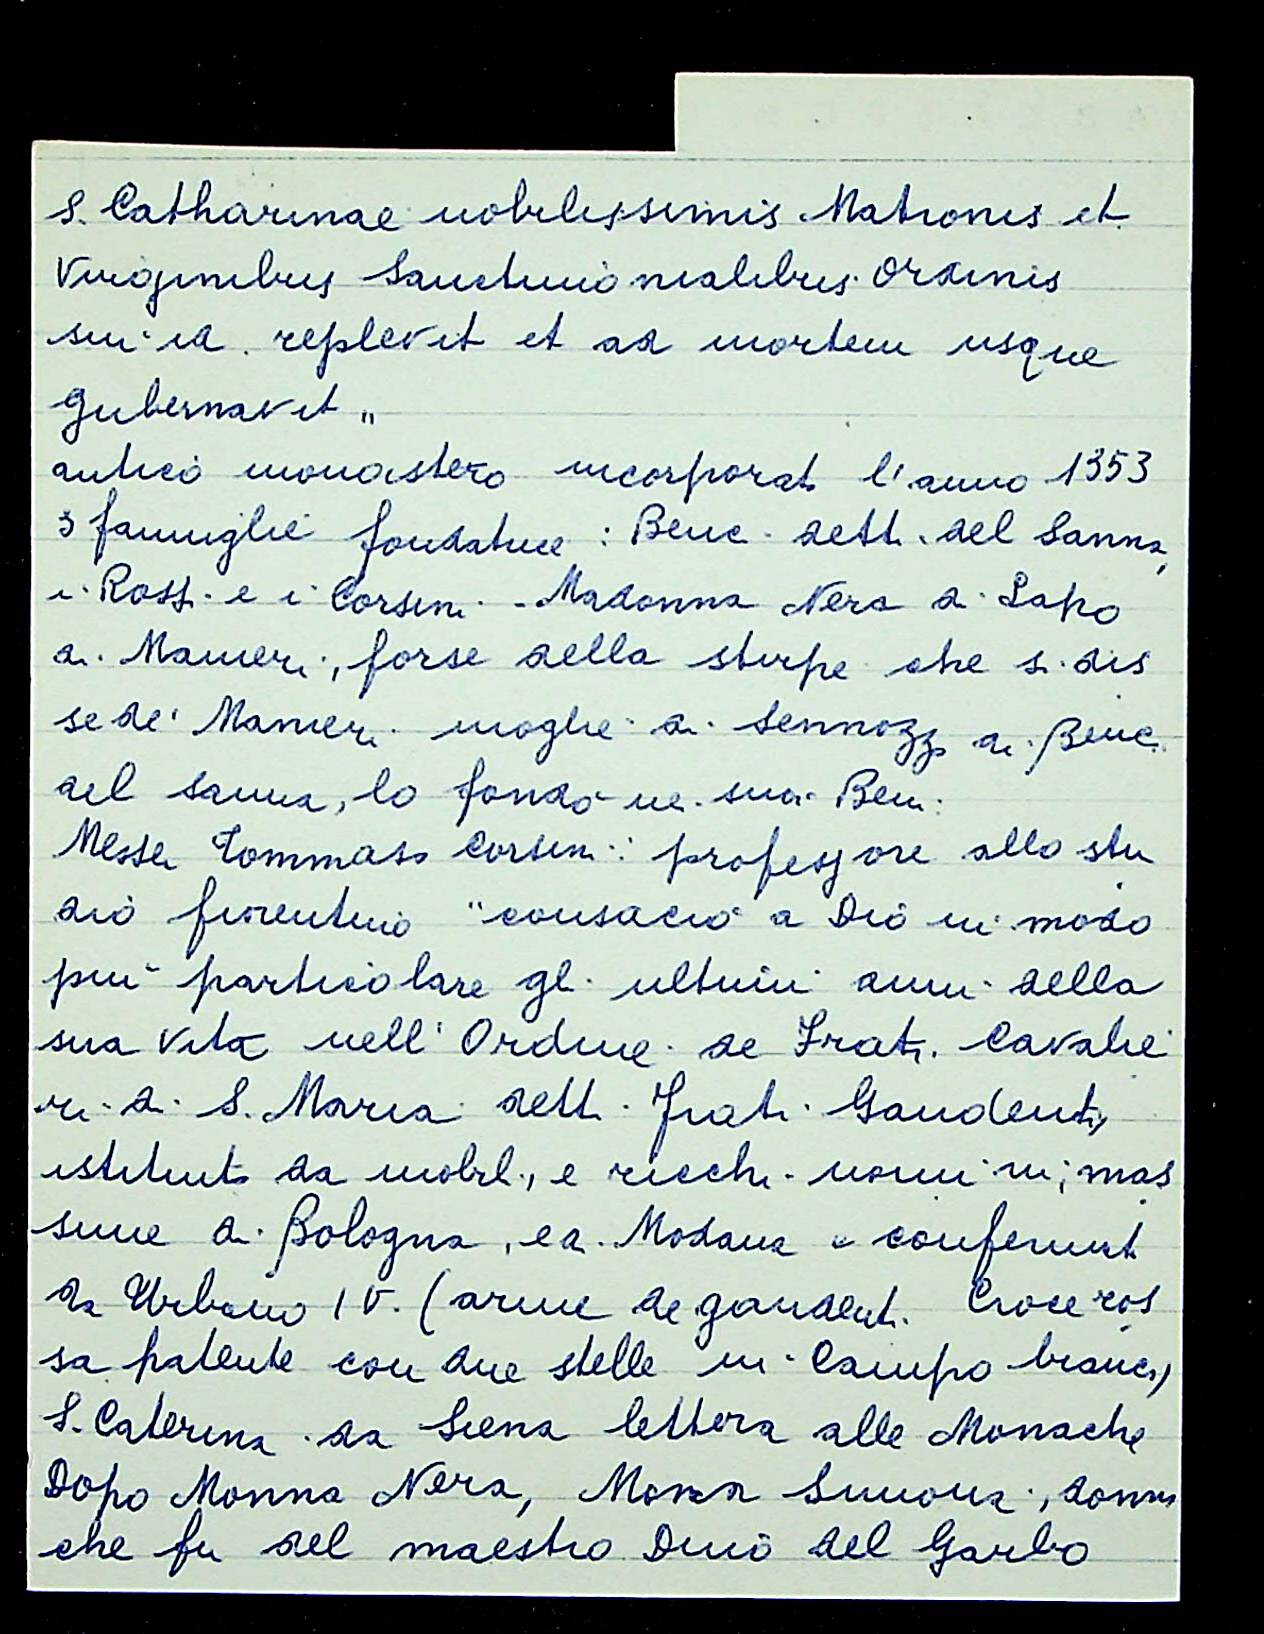 S. Catharinae nobilissimis Matronis et
Virginibus Sanctimonialibus Ordinis
sui id replevit et ad mortem usque
gubernavit"
antico monastero incorporato l'anno 1353
3 famiglie fondatrice: Benc. detti del Sanna,
i Rossi e i Corsini. - Madonna Nera di Lapo
di Manieri, forse della stirpe che si dis
se de' Manieri moglie di Sennozzo di Benc.
del Sanna, lo fondò ne suoi Beni.
Messer Tommaso Corsini: professore allo stu
dio fiorentino "consacrò a Dio in modo
più particolare gli ultimi anni della
sua vita nell'Ordine de Frati Cavalie
ri di S. Maria detti Frati Gaudenti,
istituito da nobili, e ricchi uomini, mas
sime di Bologna, e di Modana e confermat
da Urbano IV. (arme de gaudenti Croce ros
sa patente con due stelle in Campo bianco)
S. Caterina da Siena lettera alle Monache
Dopo Monna Nera, Monna Simona, donna
che fu del maestro Dino del Garbo